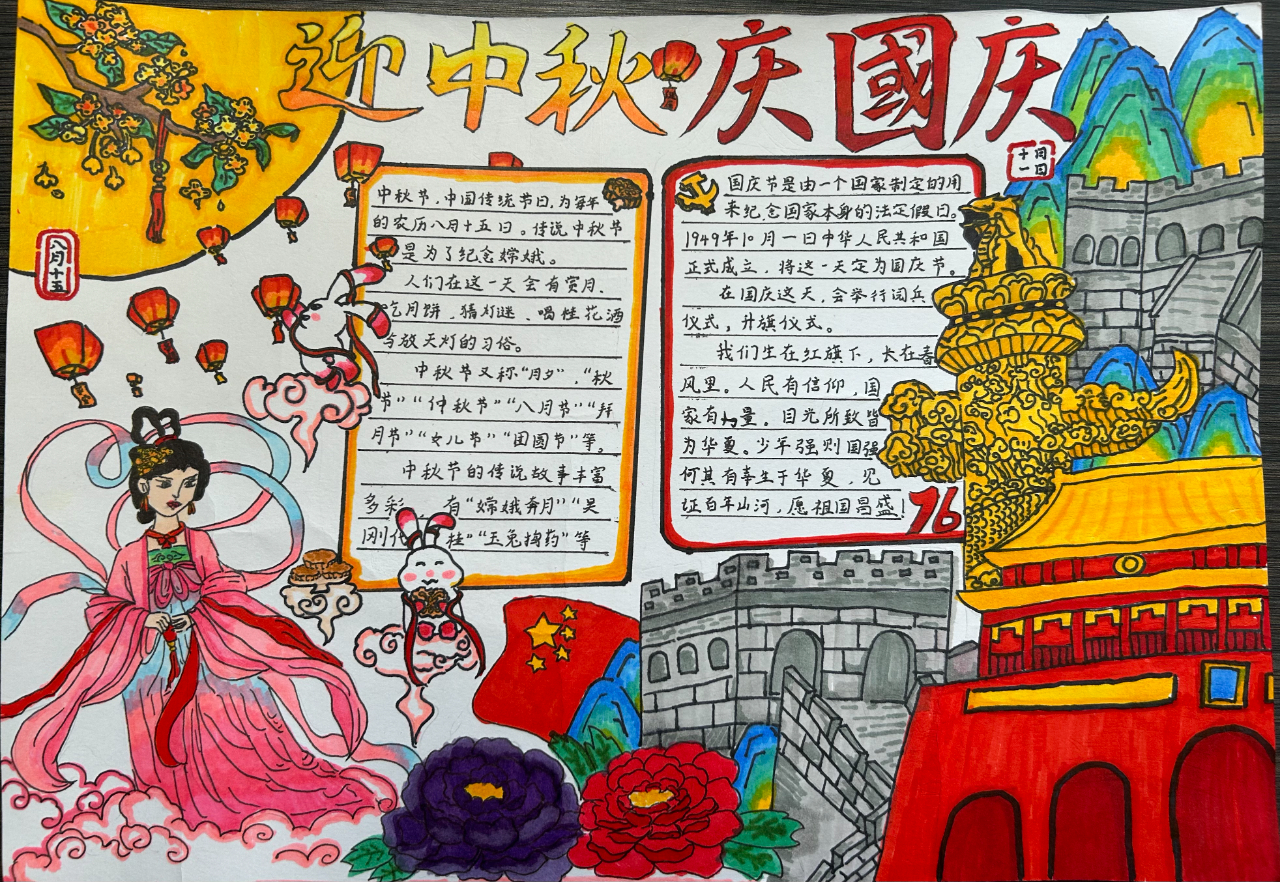 迎中秋 庆國庆
八月十五
十月一日
中秋节,中国传统节日,为每年
的农历八月十五日。传说中秋节
是为了纪念嫦娥。
人们在这一天会有赏月、
吃月饼、猜灯谜、喝桂花酒
等放天灯的习俗。
中秋节又称“月夕”,“秋
节”“仲秋节”“八月节”“拜
月节”“女儿节”“团圆节”等。
中秋节的传说故事丰富
多彩, 有“嫦娥奔月”“吴
刚伐桂”“玉兔捣药”等
国庆节是由一个国家制定的用
来纪念国家本身的法定假日。
1949年10月一日中华人民共和国
正式成立,将这一天定为国庆节。
在国庆这天,会举行阅兵
仪式,升旗仪式。
我们生在红旗下,长在春
风里。人民有信仰,国
家有力量。目光所致皆
为华夏。少年强则国强
何其有幸生于华夏,见
证百年山河,愿祖国昌盛!
76